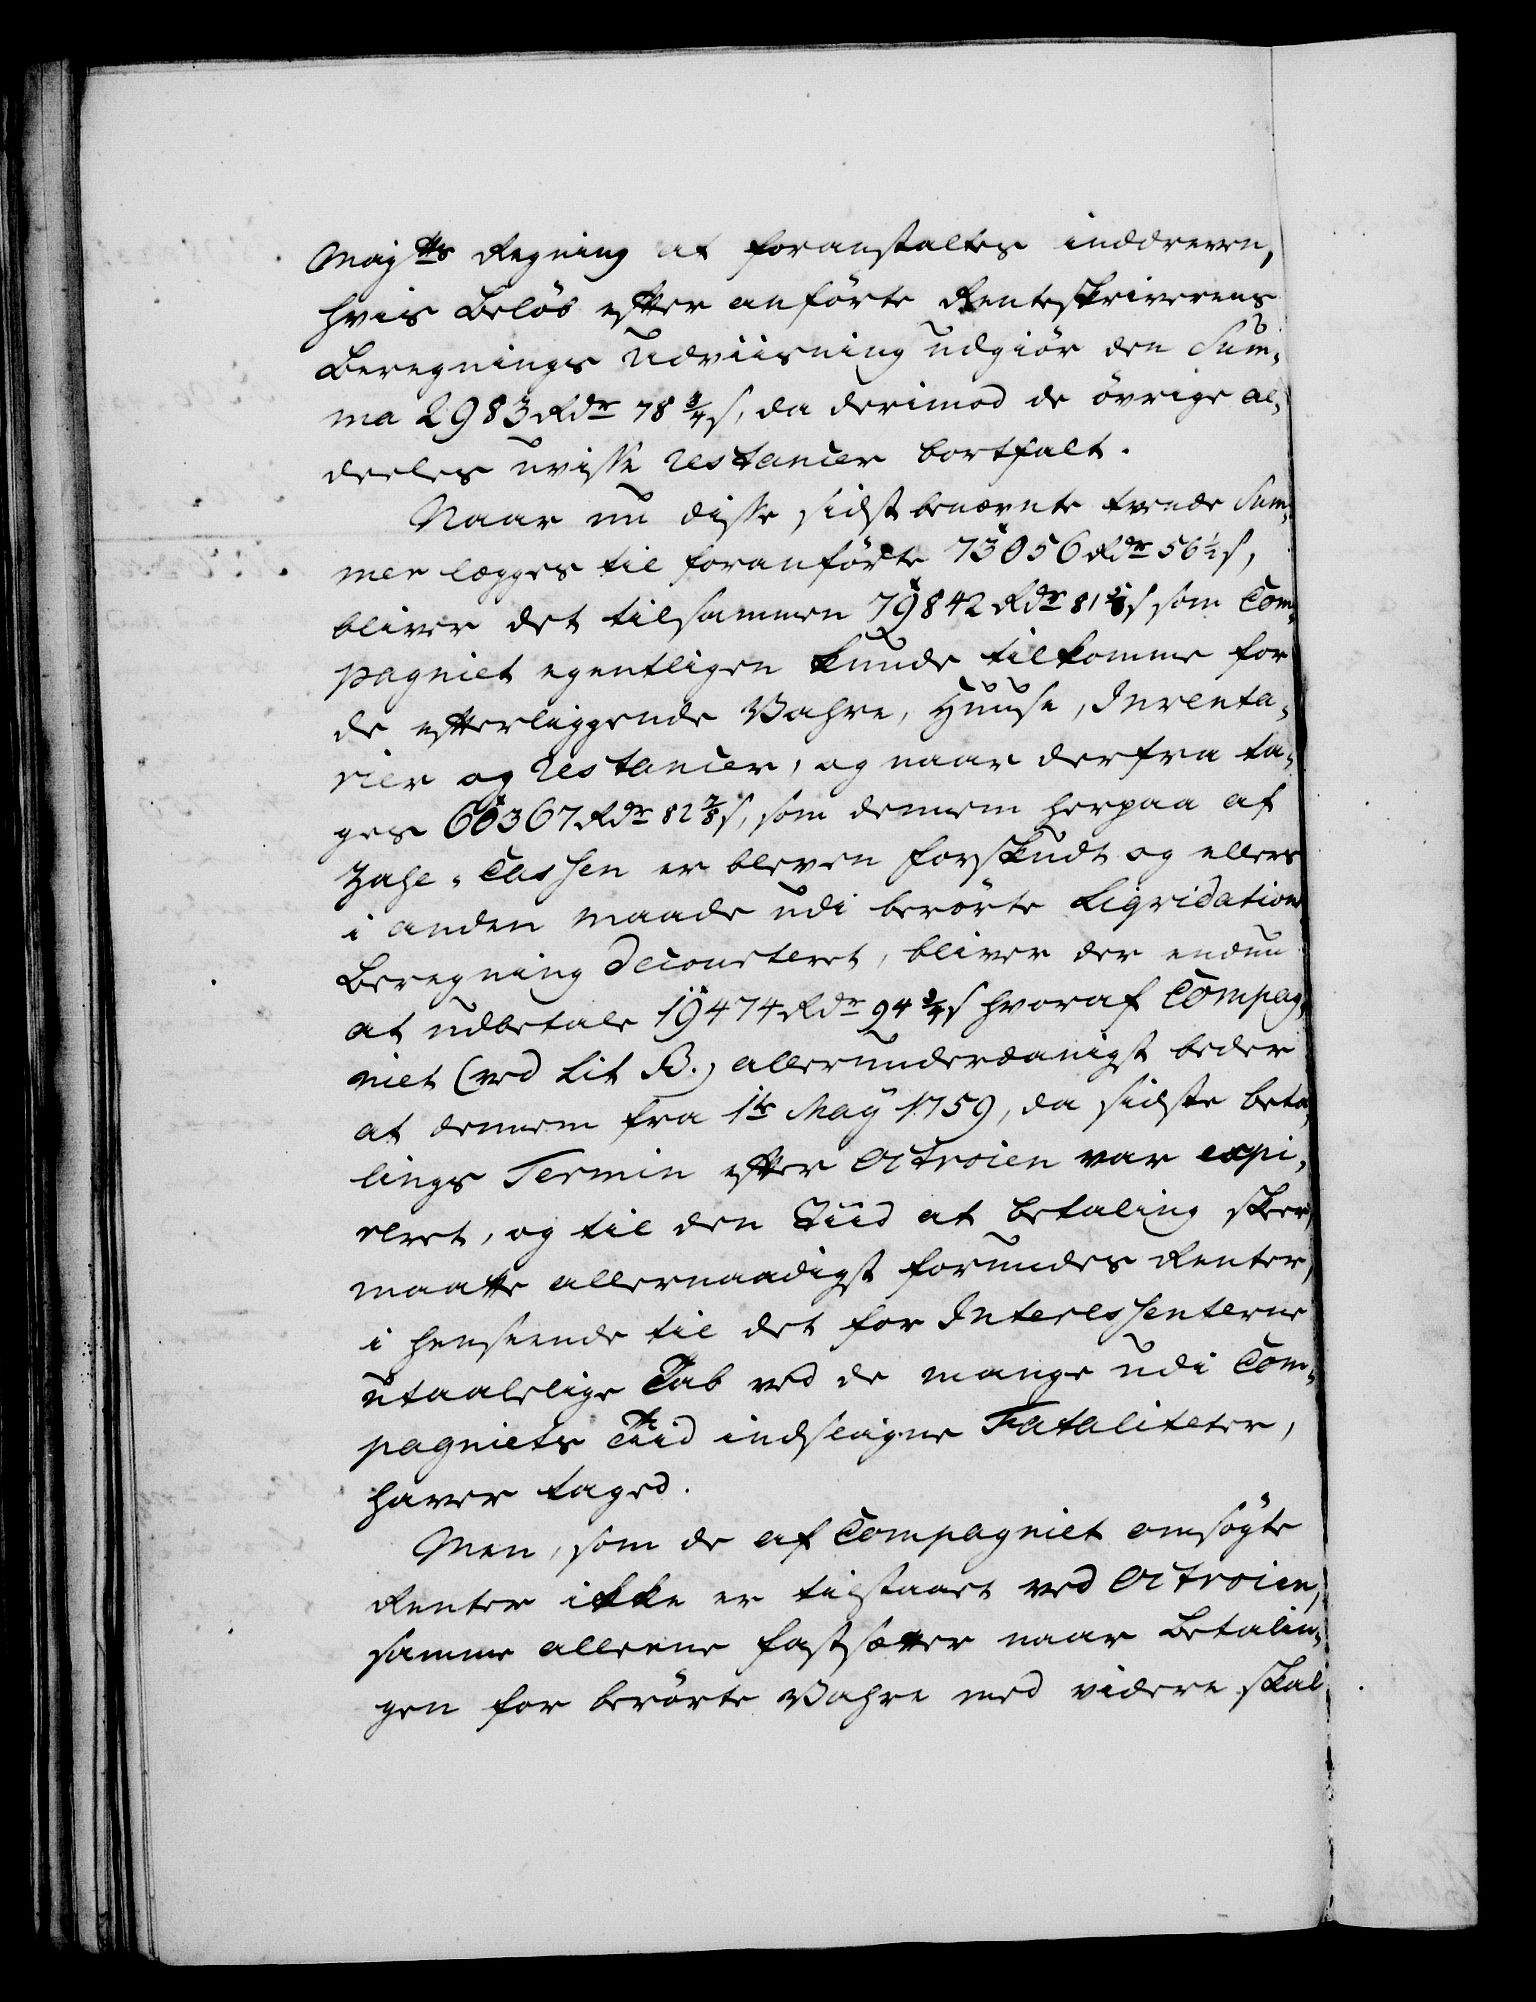 Maj:ts Regning at foranstaltes inddreven,
hvis Beløb efter anførte Renteskriverens
Beregnings Udviisning udgiør den Sum-
ma 2983 Rdr 78 3/4 s, da derimod de øvrige al-
deeles uvisse Restancier bortfalt.
Naar nu disse sidst benævnte trende Sum-
mer lægges til foranførte 73056 Rdr 56 1/2 s,
bliver det tilsammen 79842 Rdr 81 5/8 s som Com-
pagniet egentligen kunde tilkomme for
de efterliggende Vahre, Huuse, Inventa-
rier og Restancier, og naar derfra ta-
ges 60367 Rdr 82 7/8 s, som dennem herpaa af
Zahl-Cassen er bleven forskudt og ellers
i anden maade udi berørte Liqvidations
Beregning decourteret, bliver der endnu
at udbetale 19474 Rdr 94 3/4 s hvoraf Compag-
niet (ved Lit B.) allerunderdanigst beder
at dennem fra 1te Maÿ 1759, da sidste beta-
lings Termin efter Octroien var expi-
reret, og til den Tiid at betaling skeer,
maatte allernaadigst forundes Renter,
i henseende til det for Interessenterne
utaalelige Tab ved de mange udi Com-
pagniets Tiid indfaldne Fataliteter,
haver taged.
Men, som de af Compagniet ansøgte
Renter ikke er tilstaaet ved Octroien,
samme alleene fastsætter naar Betalin-
gen for berørte Vahre med videre skal